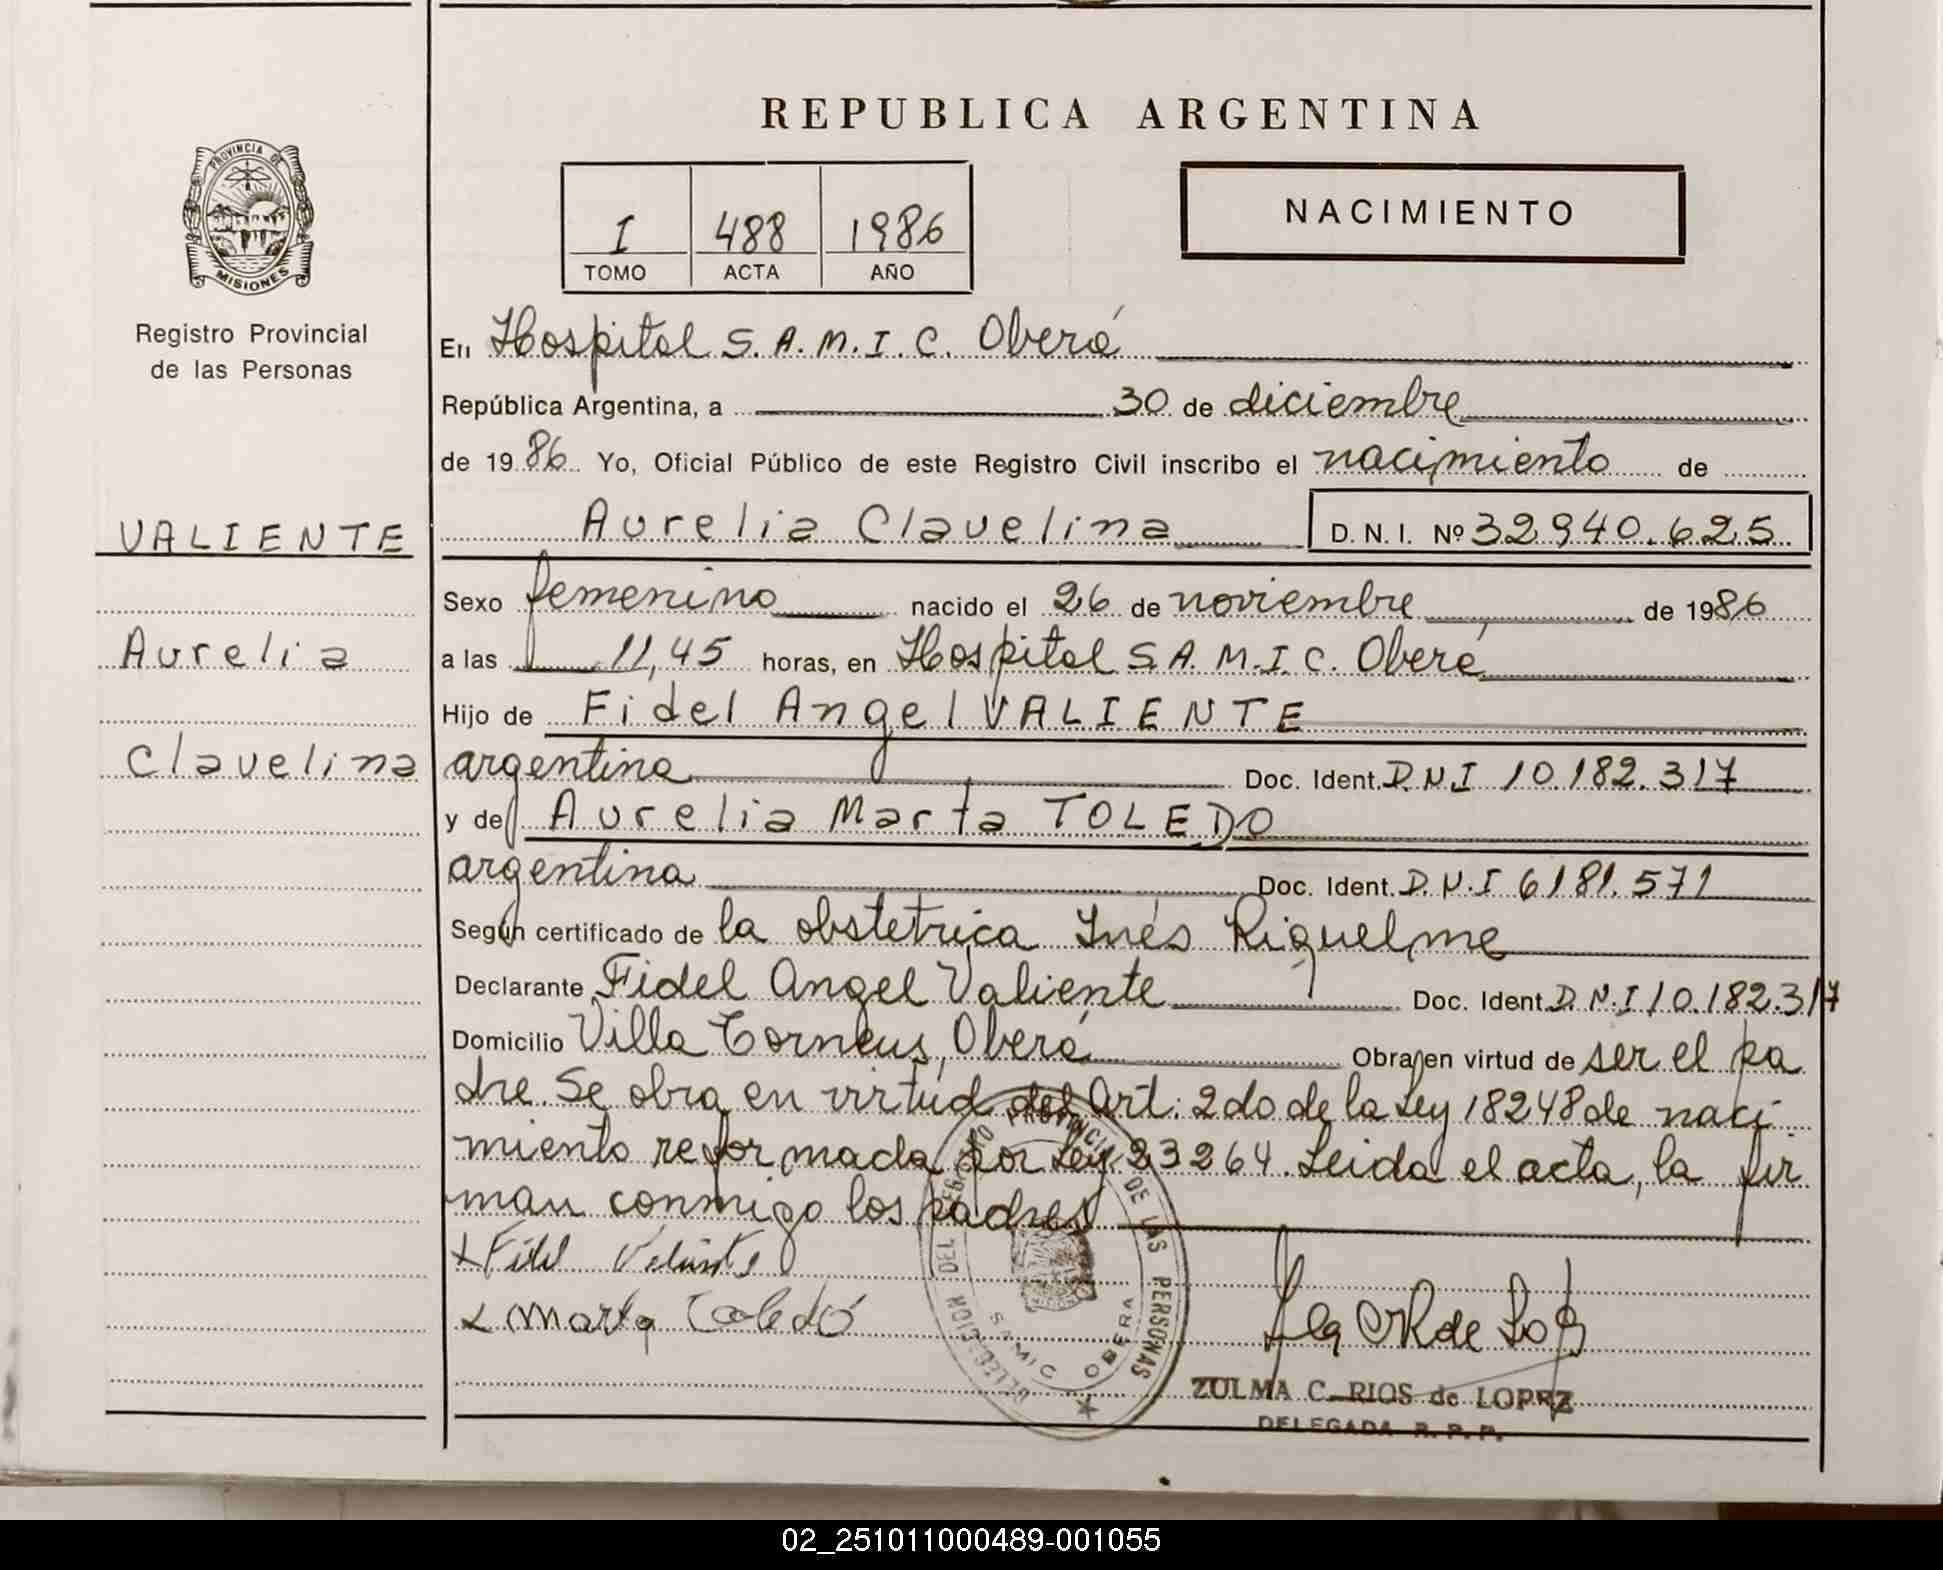 REPUBLICA ARGENTINA
PROVINCIA DE
MISIONES
Registro Provincial
de las Personas
I 488 1986
TOMO ACTA AÑO
NACIMIENTO
En Hospital S.A.M.I.C. Oberá
República Argentina, a 30 de diciembre
de 1986 Yo, Oficial Público de este Registro Civil inscribo el nacimiento de
VALIENTE
Aurelia Clavelina D.N.I. Nº 32940.625
Sexo femenino nacido el 26 de noviembre de 1986
Aurelia
a las 11,45 horas, en Hospital S.A.M.I.C. Oberá
Hijo de Fidel Angel VALIENTE
Clavelina
argentina Doc. Ident. D.N.I 10.182.317
y de Aurelia Marta TOLEDO
argentina Doc. Ident. D.N.I 6181.571
Según certificado de la obstetrica Inés Riquelme
Declarante Fidel Angel Valiente Doc. Ident. D.N.I 10.182.317
Domicilio Villa Torneus, Oberá Obra en virtud de ser el pa
dre. Se obra en virtud del Art. 2do de la Ley 18248 de naci
miento reformada por Ley 23264. Leida el acta, la fir
man conmigo los padres
x Fidel Valiente
x Marta Toledo
DELEGACION DEL REGISTRO PROVINCIAL DE LAS PERSONAS
SAMIC OBERA
ZULMA C. RIOS de LOPEZ
DELEGADA R.P.P.
02_251011000489-001055